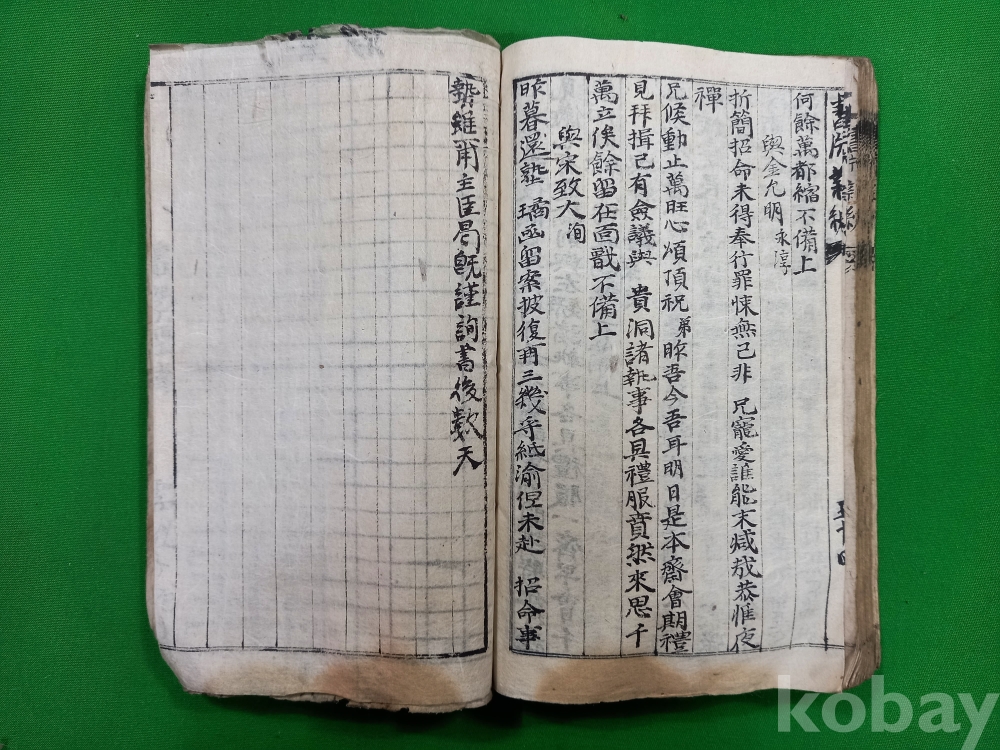 何餘萬都縮不備上
與金允明 永淳
折簡招命未得奉行罪悚無已非 兄寵愛誰能末減哉恭惟夜
禪
兄候動止萬旺心頌頂祝 弟昨吾今吾耳明日是本齋會期禮
見拜揖已有僉議與 貴洞諸執事各具禮服賁然來思千
萬立俟餘留在面戩不備上
與宋致大 洵
昨暮還塾 瑤函留案披復再三幾乎紙渝但未赴 招命事
勢雖 甫主臣曷旣謹詢書後數天
五十四
kobay